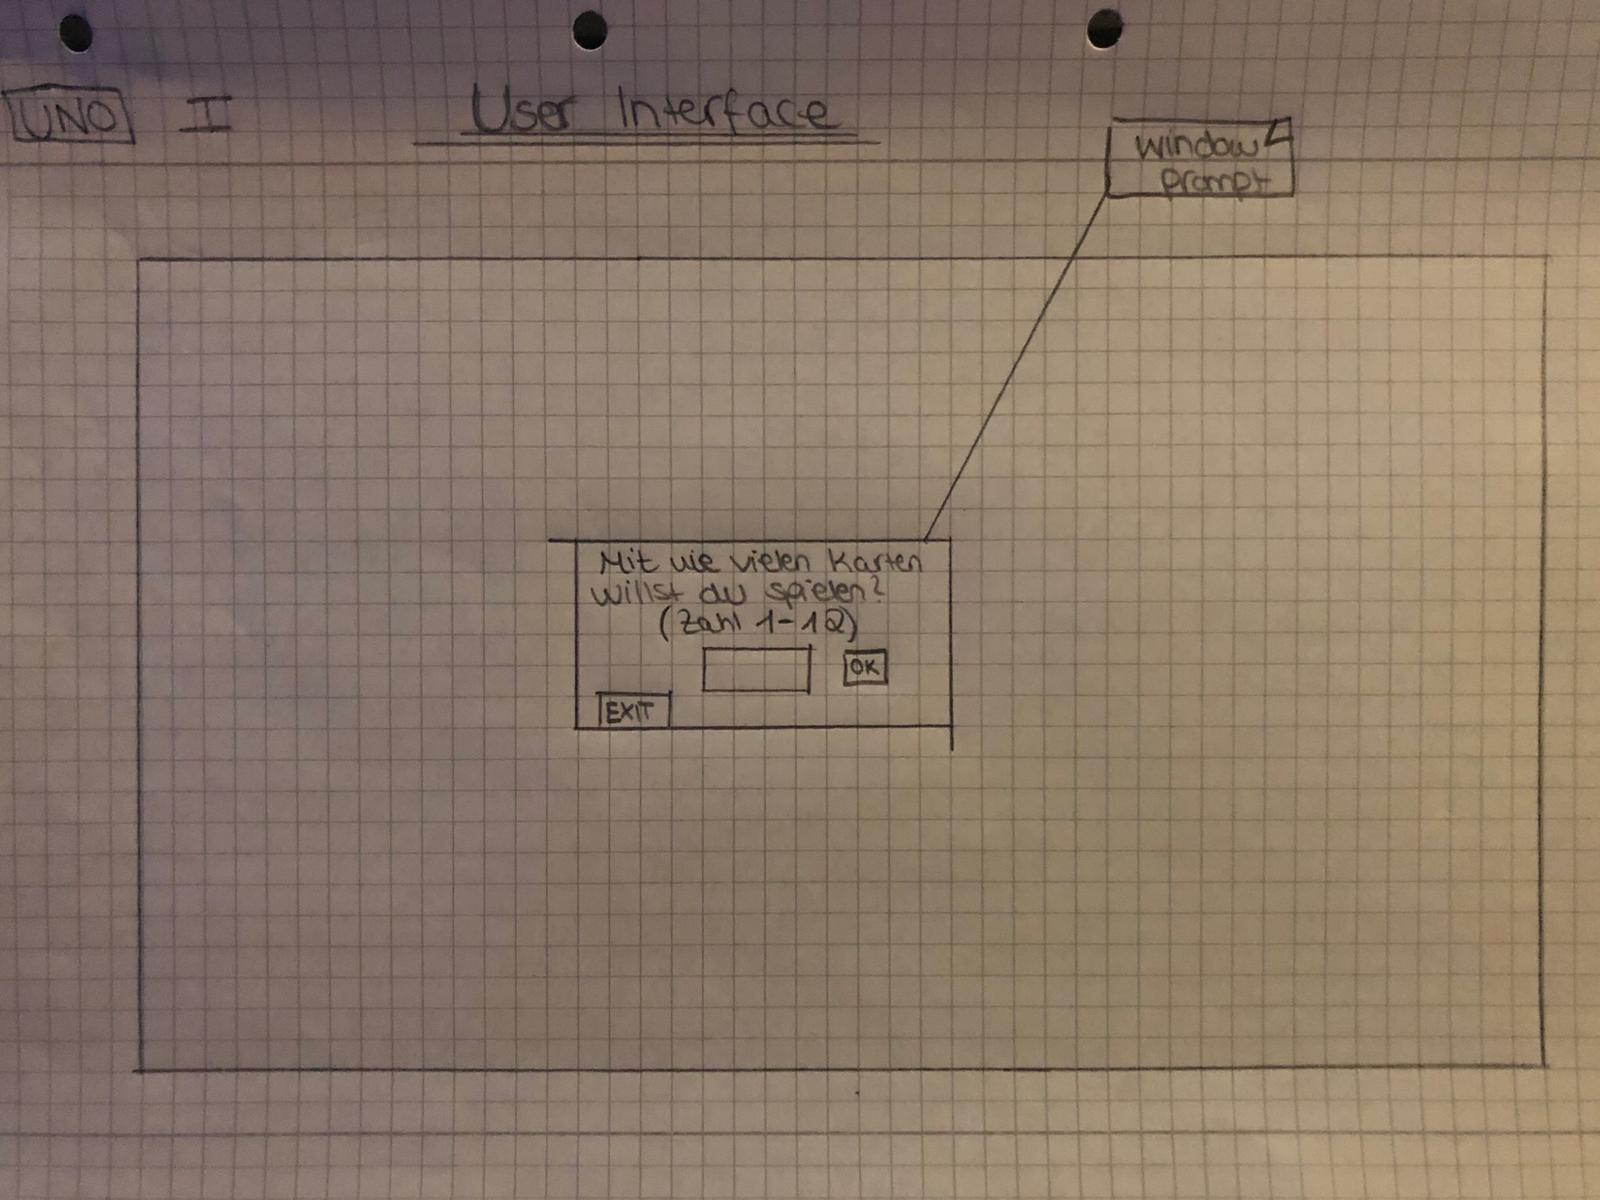 UNO I User Interface
window
prompt
Mit wie vielen Karten
willst du spielen?
(Zahl 1-12)
OK
EXIT